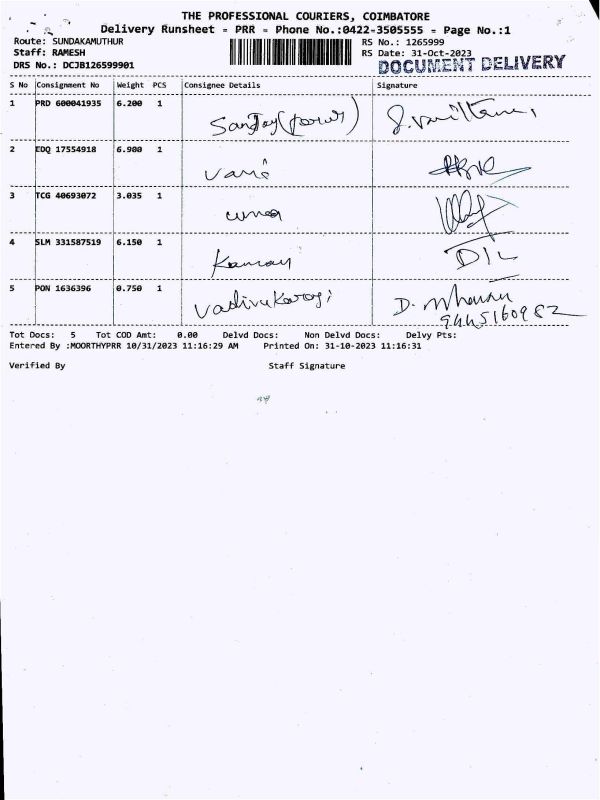 THE PROFESSIONAL COURIERS, COIMBATORE
Delivery Runsheet - PRR - Phone No.:0422-3505555 - Page No.:1
Route: SUNDAKAMUTHUR RS No.: 1265999
Staff: RAMESH RS Date: 31-Oct-2023
DRS No.: DCJB126599901 DOCUMENT DELIVERY
S No Consignment No Weight PCS Consignee Details Signature
1 PRD 600041935 6.200 1
2 EDQ 17554918 6.900 1
3 TCG 40693072 3.035 1
4 SLM 331587519 6.150 1
5 PON 1636396 0.750 1 D.
9445160982
Tot Docs: 5 Tot COD Amt: 0.00 Delvd Docs: Non Delvd Docs: Delvy Pts:
Entered By :MOORTHYPRR 10/31/2023 11:16:29 AM Printed On: 31-10-2023 11:16:31
Verified By Staff Signature